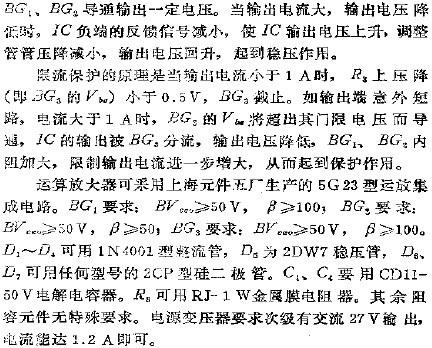 BG₁、BG₂ 导通输出一定电压。当输出电流大，输出电压降
低时，IC 负端的反馈信号减小，使 IC 输出电压上升，调整
管管压降减小，输出电压回升，起到稳压作用。
限流保护的原理是当输出电流小于 1 A时，R₅ 上压降
(即 BG₃ 的 Vbe) 小于 0.5V，BG₃ 截止。如输出端意外短
路，电流大于 1 A时，BG₃ 的 Vbe 将超出其门限电压而导
通，IC 的输出被 BG₃ 分流，输出电压降低，BG₁、BG₂ 内
阻加大，限制输出电流进一步增大，从而起到保护作用。
运算放大器可采用上海元件五厂生产的 5G23 型运放集
成电路。BG₁ 要求：BVceo≥50V，β≥100；BG₂ 要求：
BVceo≥50V，β≥50；BG₃ 要求：BVceo≥50V，β≥100。
D₁～D₄ 可用 1N4001 型整流管，D₅ 为 2DW7 稳压管，D₆、
D₇ 可用任何型号的 2CP 型硅二极管。C₁、C₄ 要用 CD11-
50V 电解电容器。R₅ 可用 RJ-1W 金属膜电阻器。其余阻
容元件无特殊要求。电源变压器要求次级有交流 27V 输出，
电流能达 1.2 A 即可。